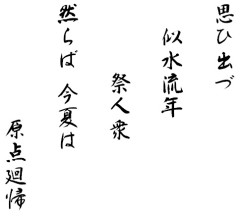 思ひ出づ
似水流年
祭人衆
然らば 今夏は
原点廻帰